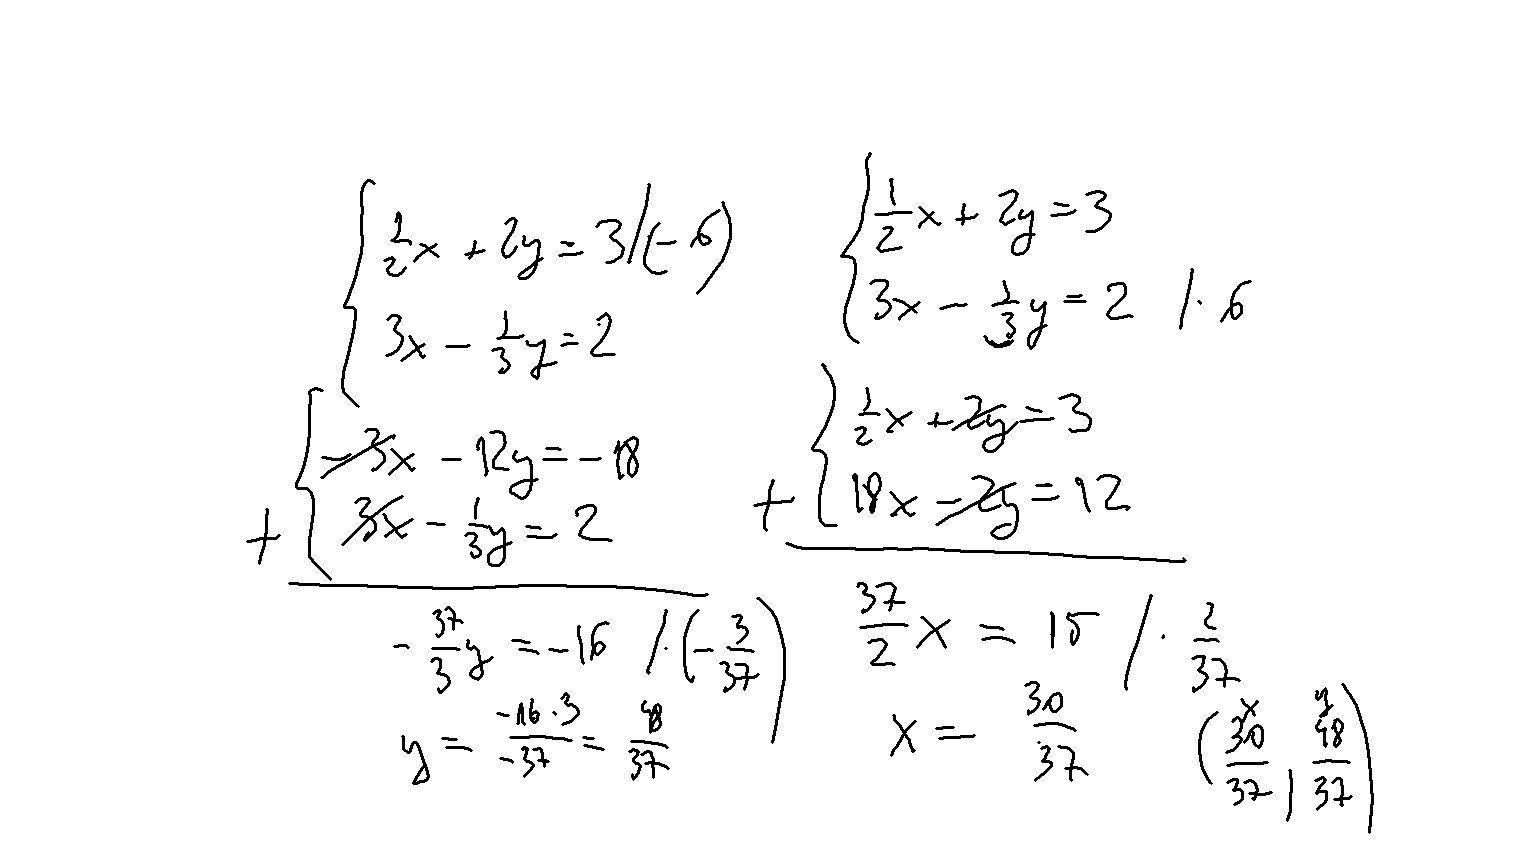 1/2 x + 2y = 3 / (-6)
3x - 1/3 y = 2
-3x - 12y = -18
+ 3x - 1/3 y = 2
- 37/3 y = -16 / · (-3/37)
y = -16·3/-37 = 48/37
1/2 x + 2y = 3
3x - 1/3 y = 2 / · 6
1/2 x + 2y = 3
+ 18x - 2y = 12
37/2 x = 15 / · 2/37
x = 30/37
x y
(30/37, 48/37)